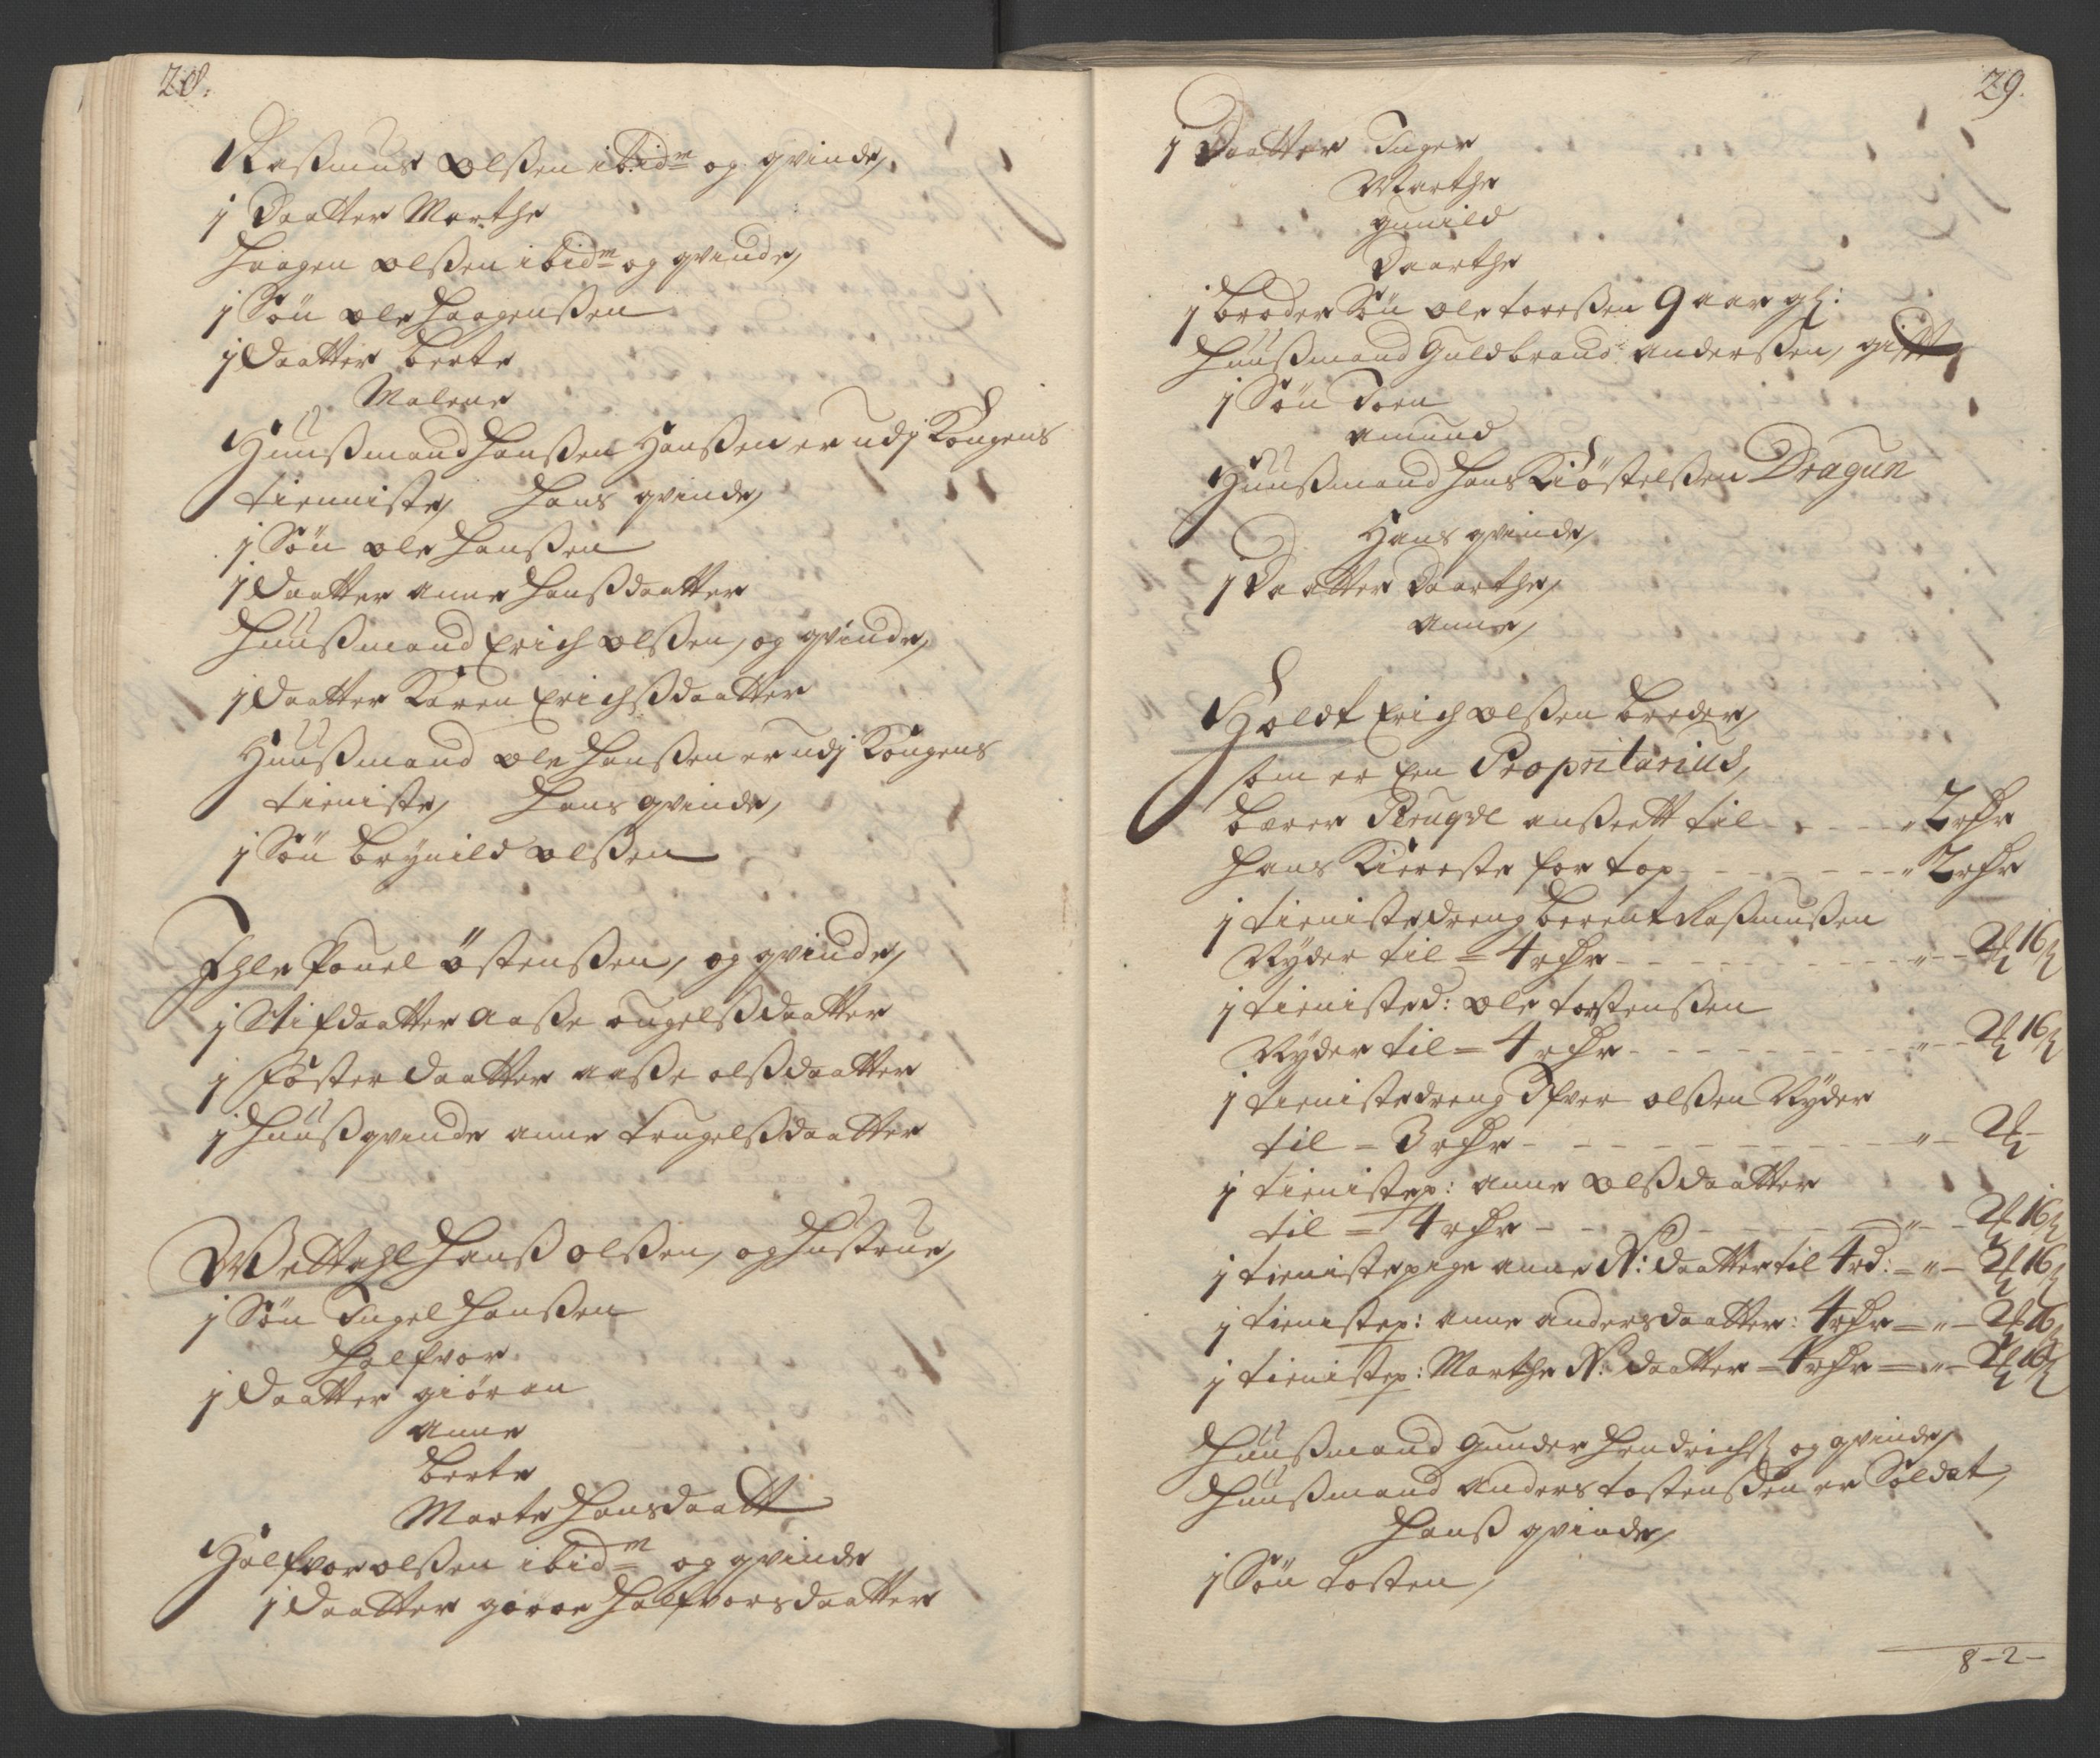 28.
Rasmus Olßen ibidm og qvinde,
1 Daatter Marthe
Haagen Olßen ibidm og qvinde,
1 Søn Ole Haagenßen
1 Daatter berte
Malene
Huußmand Hanßen Hanßen er udj Kongens
tienniste, Hans qvinde,
1 Søn Ole Hanßen
1 Daatter Anne Hanßdaatter
Huußmand Erich Olßen, og qvinde,
1 Daatter Karen Erichsdaatter
Huußmand Ole Hanßen er udj Kongens
tieniste, Hans qvinde,
1 Søn brynild Olßen
Fhle Pouel Østenßen, og qvinde,
1 Stifdaatter Aaße Engelsdaatter
1 Foster Daatter Aaße Olßdaatter
1 Huußqvinde Anne Trugelsdaatter
Wettahl Hanß Olßen, og Hustrue,
1 Søn Engel Hanßen
Halfvor
1 Daatter giøran
Anne
berte
Marte Hansdaatt
Halfvor Olßen ibidm og qvinde
1 Daatter gioroe Halfvorsdaatter
29.
1 Daatter Inger
Marthe
gunild
Daarthe
1 broder Søn Ole toreßen 9 aar gl:
Huußmand Guldbrand Anderßen, gift
1 Søn Toen
Amund
Huußmand Hans Kiøstelßen Dragun
Hans qvinde,
1 Daatter Daarthe,
Anne,
Holdt Erich Olßen breder,
som er Een Propritarius,
bærer Peruqve anßett til - - - - " 2 rdr
Hans Kiereste for top - - - - - - " 2 rdr
1 tienistedreng berent Raßmußen
Nyder til = 4 rdr - - - - - - - " - 2 16
1 tienisted: Ole torstenßen
Nyder til = 4 rdr - - - - - - - " - 2 16
1 tienistedreng Ifver Olßen Nyder
til = 3 rdr - - - - - - - - " - 2 -
1 tienistep: Anne Olßdaatter
til = 4 rdr - - - - - - - " - 2 16
1 tienistepige Anne N: Daatter til 4 rd: - " - 2 16
1 tienistep: Anne Andersdaatter: 4 rdr = " - 2 16
1 tienistep: Marthe N: Daatter = 4 rdr = " - 2 16
Huußmand Gunder Hendrichs og qvinde,
Huußmand Anders tostenßen er Soldat,
Hanß qvinde,
1 Søn tosten,
8 - 2 -